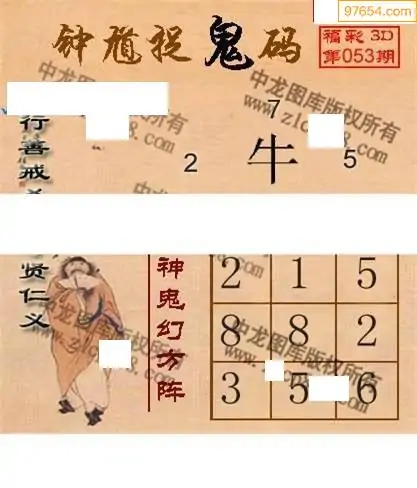 97654.com
钟馗捉鬼码
福彩3D
第053期
中龙图库版权所有
行善戒
7
2 牛 5
贤仁义
神鬼幻方阵
2 1 5
8 8 2
3 5 6
中龙图库版权所有